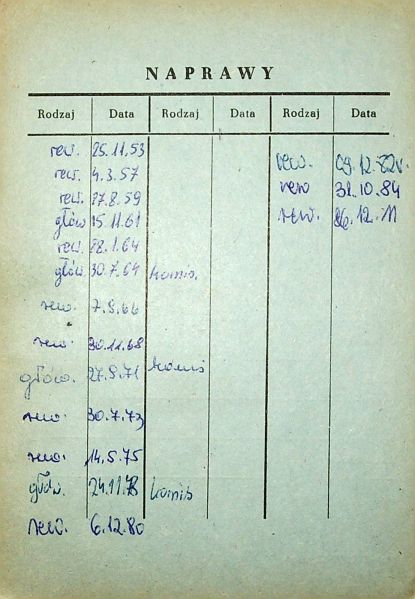 NAPRAWY
Rodzaj Data Rodzaj Data Rodzaj Data
rew. 25.11.53
rew. 4.3.57
rew. 27.8.59
głów. 15.11.61
rew. 28.1.64
głów. 30.7.64 komis.
rew. 7.9.66
rew. 30.11.68
głów. 27.9.71 komis
rew. 30.7.73
rew. 14.5.75
głów. 24.11.78 komis
rew. 6.12.80
rew. 09.12.82r.
rew 31.10.84
rew. 12.11